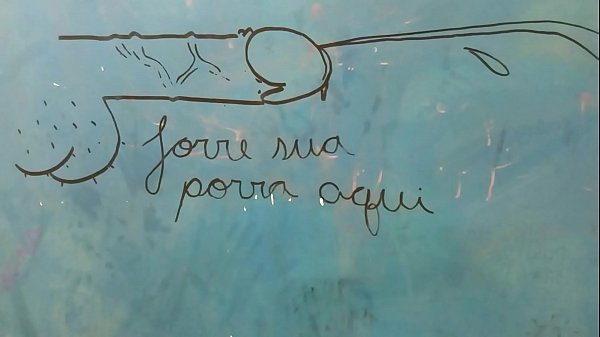 forre sua
porra aqui